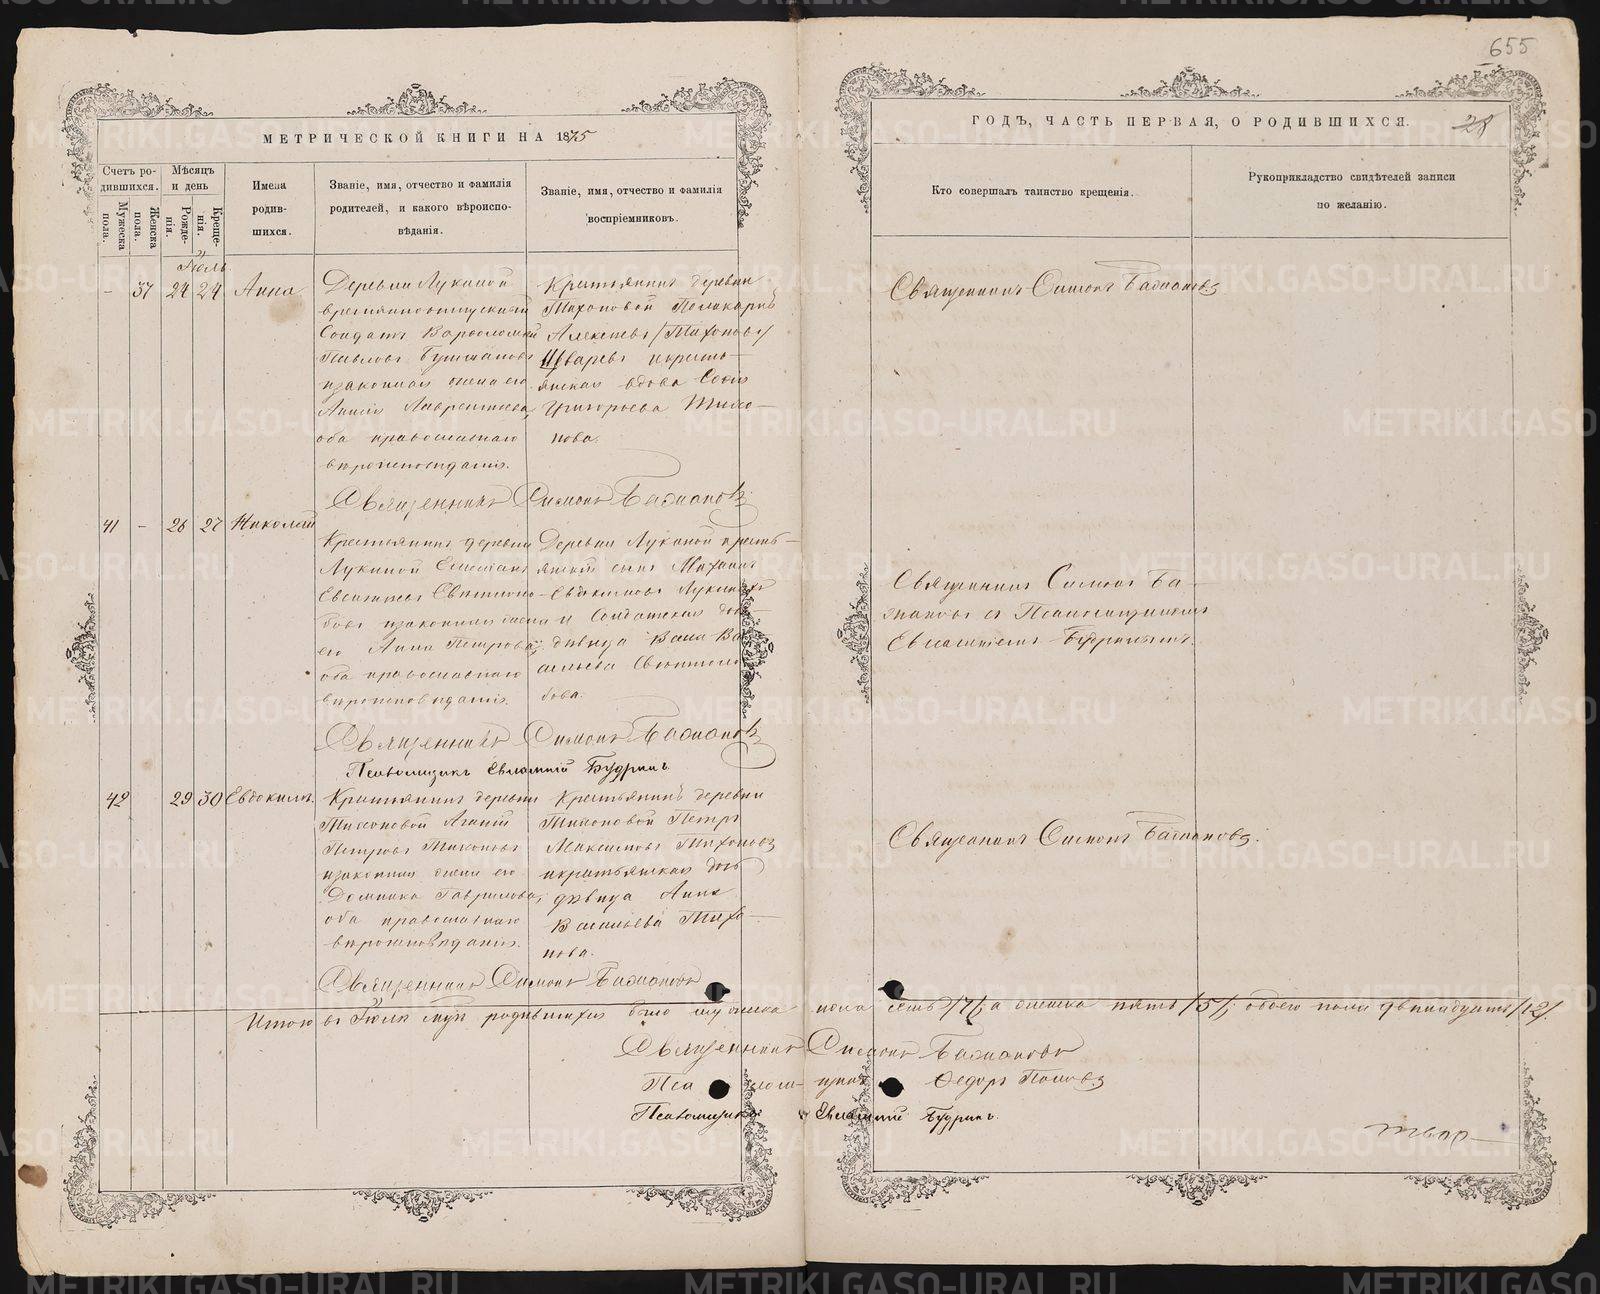 655
МЕТРИЧЕСКОЙ КНИГИ НА 1875
ГОДЪ, ЧАСТЬ ПЕРВАЯ, О РОДИВШИХСЯ.
28
Счетъ родившихся.
Мужеска пола.
Женска пола.
Мѣсяцъ и день
Рожденія.
Крещенія.
Имена родившихся.
Званіе, имя, отчество и фамилія родителей, и какого вѣроисповѣданія.
Званіе, имя, отчество и фамилія воспріемниковъ.
Кто совершалъ таинство крещенія.
Рукоприкладство свидѣтелей записи по желанію.
Іюль
- 37 24 24 Анна
Деревни Лукиной
временноотпускной
Солдатъ Варѳоломей
Павловъ
изаконная жена его
Лаврентьева,
оба православнаго
вѣроисповѣданія.
Крестьянинъ деревни
Тихоновой Поликарпъ
Алексѣевъ /Тихоновъ/
кресть-
янская вдова Софія
Григорьева Тихо-
нова.
Священникъ Симонъ Бажановъ
Священникъ Симонъ Бажановъ
41 - 26 27 Николай
Крестьянинъ деревни
Лукиной
изаконная жена
его Анна Петрова,
оба православнаго
вѣроисповѣданія.
Деревни Лукиной кресть-
янскій сынъ
Евдокимовъ Лукиныхъ
и Солдатская доч-
дѣвица
бова.
Священникъ Симонъ Ба-
жановъ съ Псаломщикомъ
Евлампіемъ Будринымъ.
Священникъ Симонъ Бажановъ
Псаломщикъ Евлампій Будринъ
42 29 30 Евдокимъ.
Крестьянинъ деревни
Тихоновой
Петровъ Тихоновъ
изаконная жена его
Домника Гаврилова,
оба православнаго
вѣроисповѣданія.
Крестьянинъ деревни
Тихоновой Петръ
Максимовъ Тихоновъ
икрестьянская дочь
дѣвица Анна
Васильева Тихо-
нова.
Священникъ Симонъ Бажановъ.
Священникъ Симонъ Бажановъ
Итого въ Іюлѣ родившихся было мужеска пола семь /7/, а женска пять /5/, обоего пола двѣнадцать /12/.
Священникъ Симонъ Бажановъ
Псаломщикъ Ѳедоръ Поповъ
Псаломщикъ Евлампій Будринъ.
METRIKI.GASO-URAL.RU